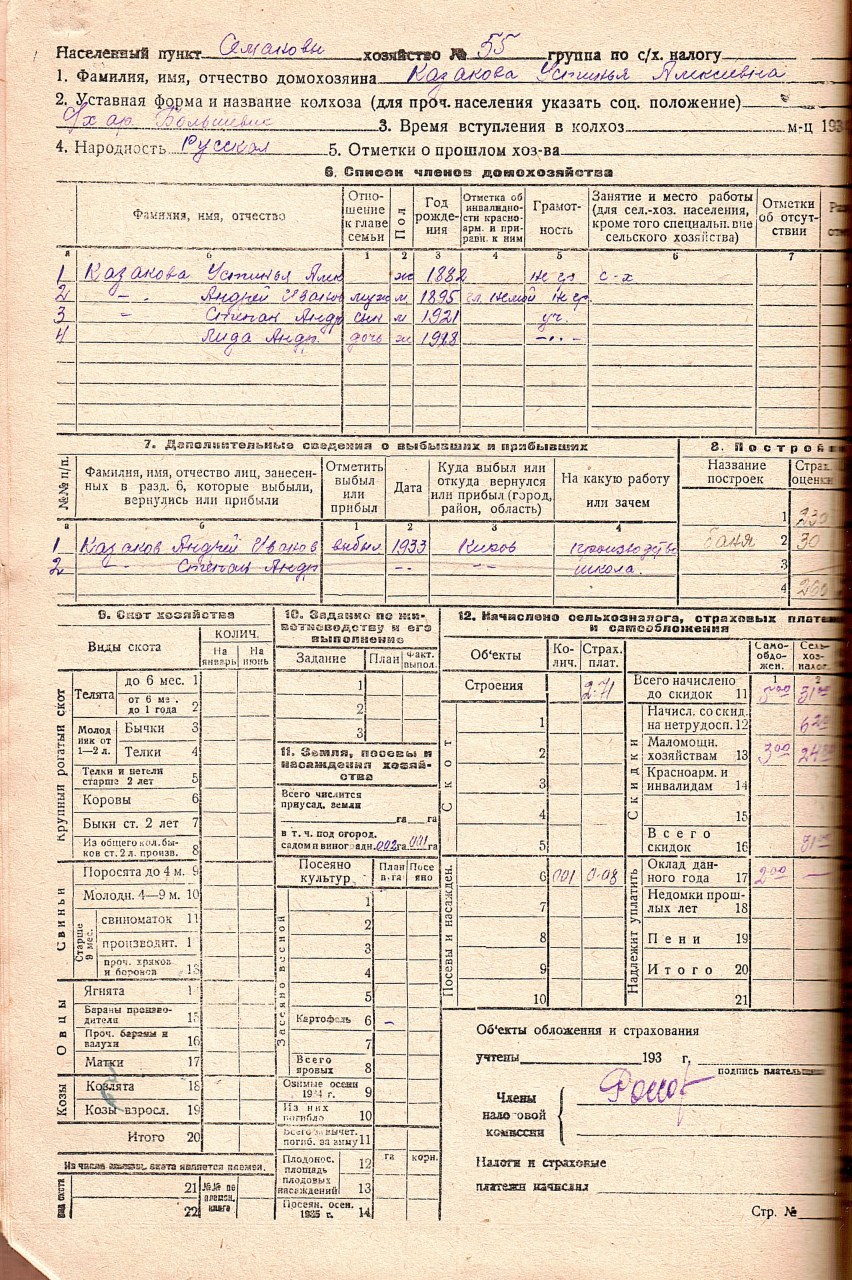 Населенный пункт Семаковы хозяйство № 55 группа по с/х. налогу
1. Фамилия, имя, отчество домохозяина Казакова Устинья Алексеевна
2. Уставная форма и название колхоза (для проч. населения указать соц. положение)
с/х ар. Большевик 3. Время вступления в колхоз м-ц 193
4. Народность Русская 5. Отметки о прошлом хоз-ва
6. Список членов домохозяйства
Фамилия, имя, отчество Отношение к главе семьи Пол Год рождения Отметка об инвалидности красноарм. и приравн. к ним Грамотность Занятие и место работы (для сел.-хоз. населения, кроме того специальн. вне сельского хозяйства) Отметки об отсутствии
а б 1 2 3 4 5 6 7
1 Казакова Устинья Алек ж 1882 не гр. с-х
2 — " Андрей Иванов муж м 1895 гл. немой не гр.
3 " Степан Андр сын м 1921 уч.
4 Лида Андр. дочь ж 1928 — " —
7. Дополнительные сведения о выбывших и прибывших
№№ п/п. Фамилия, имя, отчество лиц, занесенных в разд. 6, которые выбыли, вернулись или прибыли Отметить выбыл или прибыл Дата Куда выбыл или откуда вернулся или прибыл (город, район, область) На какую работу или зачем
а б 1 2 3 4
1 Казаков Андрей Иванов выбыл 1933 Киров производство
2 — " — Степан Андр — " — — " — школа.
8. Постройки
Название построек Страх. оценка
1 230
баня 2 30
3
4 260
9. Скот хозяйства
Виды скота КОЛИЧ.
На январь На июнь
Крупный рогатый скот
Телята до 6 мес. 1
от 6 мес. до 1 года 2
Молодняк от 1—2 л. Бычки 3
Телки 4
Телки и нетели старше 2 лет 5
Коровы 6
Быки ст. 2 лет 7
Из общего кол. быков ст. 2 л. произв. 8
Свиньи
Поросята до 4 м. 9
Молодн. 4—9 м. 10
Старше 9 мес. свиноматок 11
производит. 1
проч. хряков и боровов 13
Овцы
Ягнята 1
Бараны производителя 15
Проч. бараны и валухи 16
Матки 17
Козы
Козлята 18
Козы взросл. 19
Итого 20
Из числа взросл. скота является племен.
Вид скота 21 №№ по племен. книге
22
10. Задание по животноводству и его выполнение
Задание План Факт. выпол.
1
2
3
11. Земля, посевы и насаждения хозяйства
Всего числится приусад. земли
га га
в т. ч. под огород.
садом и виноградн. 002 га 001 га
Посеяно культур План в га Посеяно
Засеяно весной
1
2
3
4
5
Картофель 6 –
7
Всего яровых 8
Озимые осени 1934 г. 9
Из них погибло 10
Всего за вычет. погиб. за зиму 11
Плодонос. площадь плодовых насаждений 12 га корн.
13
Посеян. осен. 1935 г. 14
12. Начислено сельхозналога, страховых платеж и самообложения
Об'екты Колич. Страх. плат.
Строения 2-71
Скот
1
2
3
4
5
Посевы и насажден.
6 001 0-08
7
8
9
10
Самообложен. Сельхозналог
1 2
Всего начислено до скидок 11 5 00 31 00
Скидки
Начисл. со скид. на нетрудосп. 12 6 20
Маломощн. хозяйствам 13 3 00 24 80
Красноарм. и инвалидам 14
15
Всего скидок 16 31 00
Надлежит уплатить
Оклад данного года 17 2 00 —
Недомки прошлых лет 18
Пени 19
Итого 20
21
Об'екты обложения и страхования
учтены 193 г.
подпись плательщика
Члены налоговой комиссии
Налоги и страховые
платежи начислил
Стр. №